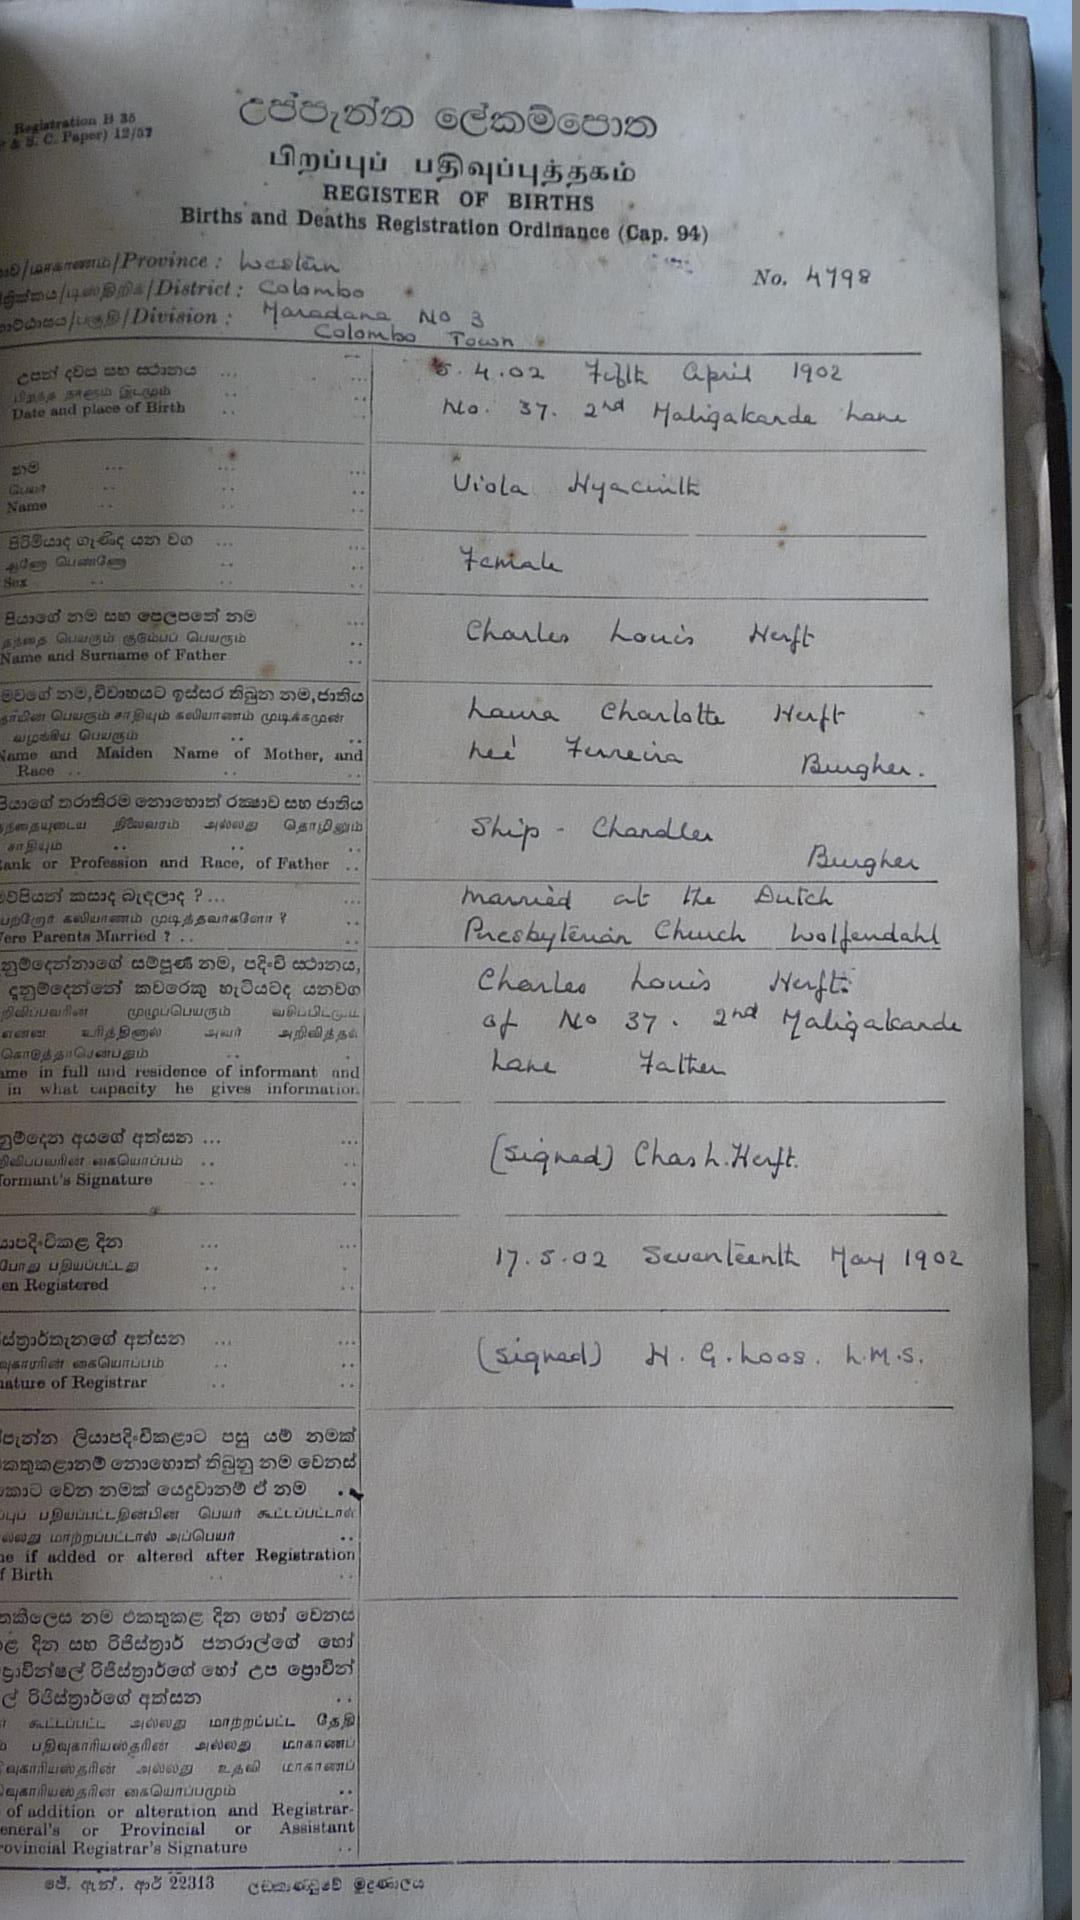 Registration B 35
& S. C. Paper) 12/57
උප්පැන්න ලේකම්පොත
பிறப்புப் பதிவுப்புத்தகம்
REGISTER OF BIRTHS
Births and Deaths Registration Ordinance (Cap. 94)
No. 4798
/மாகாணம்/Province : Western
/டிஸ்திறிக்/District : Colombo
/பகுதி/Division : Maradana No 3
Colombo Town
උපන් දවස සහ ස්ථානය ... ...
பிறந்த நாளும் இடமும் .. ..
Date and place of Birth .. ..
5.4.02 Fifth April 1902
No. 37. 2nd Maligakande Lane
නාම ... ... ...
பெயர் .. .. ..
Name .. .. ..
Viola Hyacinth
පිරිමියාද ගැණිද යන වග ... ...
ஆணோ பெண்ணோ .. ..
Sex .. .. ..
Female
පියාගේ නම සහ පෙලපතේ නම ...
தந்தை பெயரும் குடும்பப் பெயரும் ..
Name and Surname of Father ..
Charles Louis Herft
මවගේ නම, විවාහයට ඉස්සර තිබුන නම, ජාතිය
தாயின் பெயரும் சாதியும் கலியாணம் முடிக்கமுன்
வழங்கிய பெயரும் .. ..
Name and Maiden Name of Mother, and
Race .. .. ..
Laura Charlotte Herft
neé Ferreira Burgher.
පියාගේ තරාතිරම නොහොත් රක්ෂාව සහ ජාතිය
தந்தையுடைய நிலைவரம் அல்லது தொழிலும்
சாதியும் .. .. ..
Rank or Profession and Race, of Father ..
Ship - Chandler
Burgher
මව්පියන් කසාද බැඳලාද ? ... ...
பெற்றோர் கலியாணம் முடித்தவர்களோ ? ..
Were Parents Married ? .. ..
Married at the Dutch
Presbyterian Church Wolfendahl
දනුම්දෙන්නාගේ සම්පූර්‍ණ නම, පදිංචි ස්ථානය,
දැනුම්දෙන්නේ කවරෙකු හැටියටද යනවග
அறிவிப்பவரின் முழுப்பெயரும் வசிப்பிடமும்
என்ன உரித்தினால் அவர் அறிவித்தல்
கொடுத்தாரென்பதும் .. ..
ame in full and residence of informant and
in what capacity he gives information.
Charles Louis Herft.
of No 37. 2nd Maligakande
Lane Father
නුම්දෙන අයගේ අත්සන ... ...
றிவிப்பவரின் கையொப்பம் .. ..
formant's Signature .. ..
(Signed) Chas L. Herft.
යාපදිංචිකළ දින ... ...
போது பதியப்பட்டது .. .
en Registered .. ..
17.5.02 Seventeenth May 1902
ස්ත්‍රාර්තැනගේ අත්සන ... ...
வுகாரரின் கையொப்பம் .. ..
nature of Registrar .. ..
(Signed) H. G. Loos. L.M.S.
ප්පැන්න ලියාපදිංචිකළාට පසු යම් නමක්
කතුකළානම් නොහොත් තිබුනු නම වෙනස්
කොට වෙන නමක් යෙදුවානම් ඒ නම ..
ப்புப் பதியப்பட்டதின்பின் பெயர் கூட்டப்பட்டால்
ல்லது மாற்றப்பட்டால் அப்பெயர் ..
ne if added or altered after Registration
f Birth .. ..
තකීලෙස නම එකතුකළ දින හෝ වෙනස්
ළ දින සහ රිජිස්ත්‍රාර් ජනරාල්ගේ හෝ
ප්‍රොවින්ෂල් රිජිස්ත්‍රාර්ගේ හෝ උප ප්‍රොවින්
ල් රිජිස්ත්‍රාර්ගේ අත්සන ..
கூட்டப்பட்ட அல்லது மாற்றப்பட்ட தேதி
பதிவுகாரியஸ்தரின் அல்லது மாகாணப்
வுகாரியஸ்தரின் அல்லது உதவி மாகாணப்
வுகாரியஸ்தரின் கையொப்பமும் ..
of addition or alteration and Registrar-
eneral's or Provincial or Assistant
rovincial Registrar's Signature ..
ජේ. ඇන්. ආර් 22313 ලඞකාණ්ඩුවේ මුද්‍රණාලය